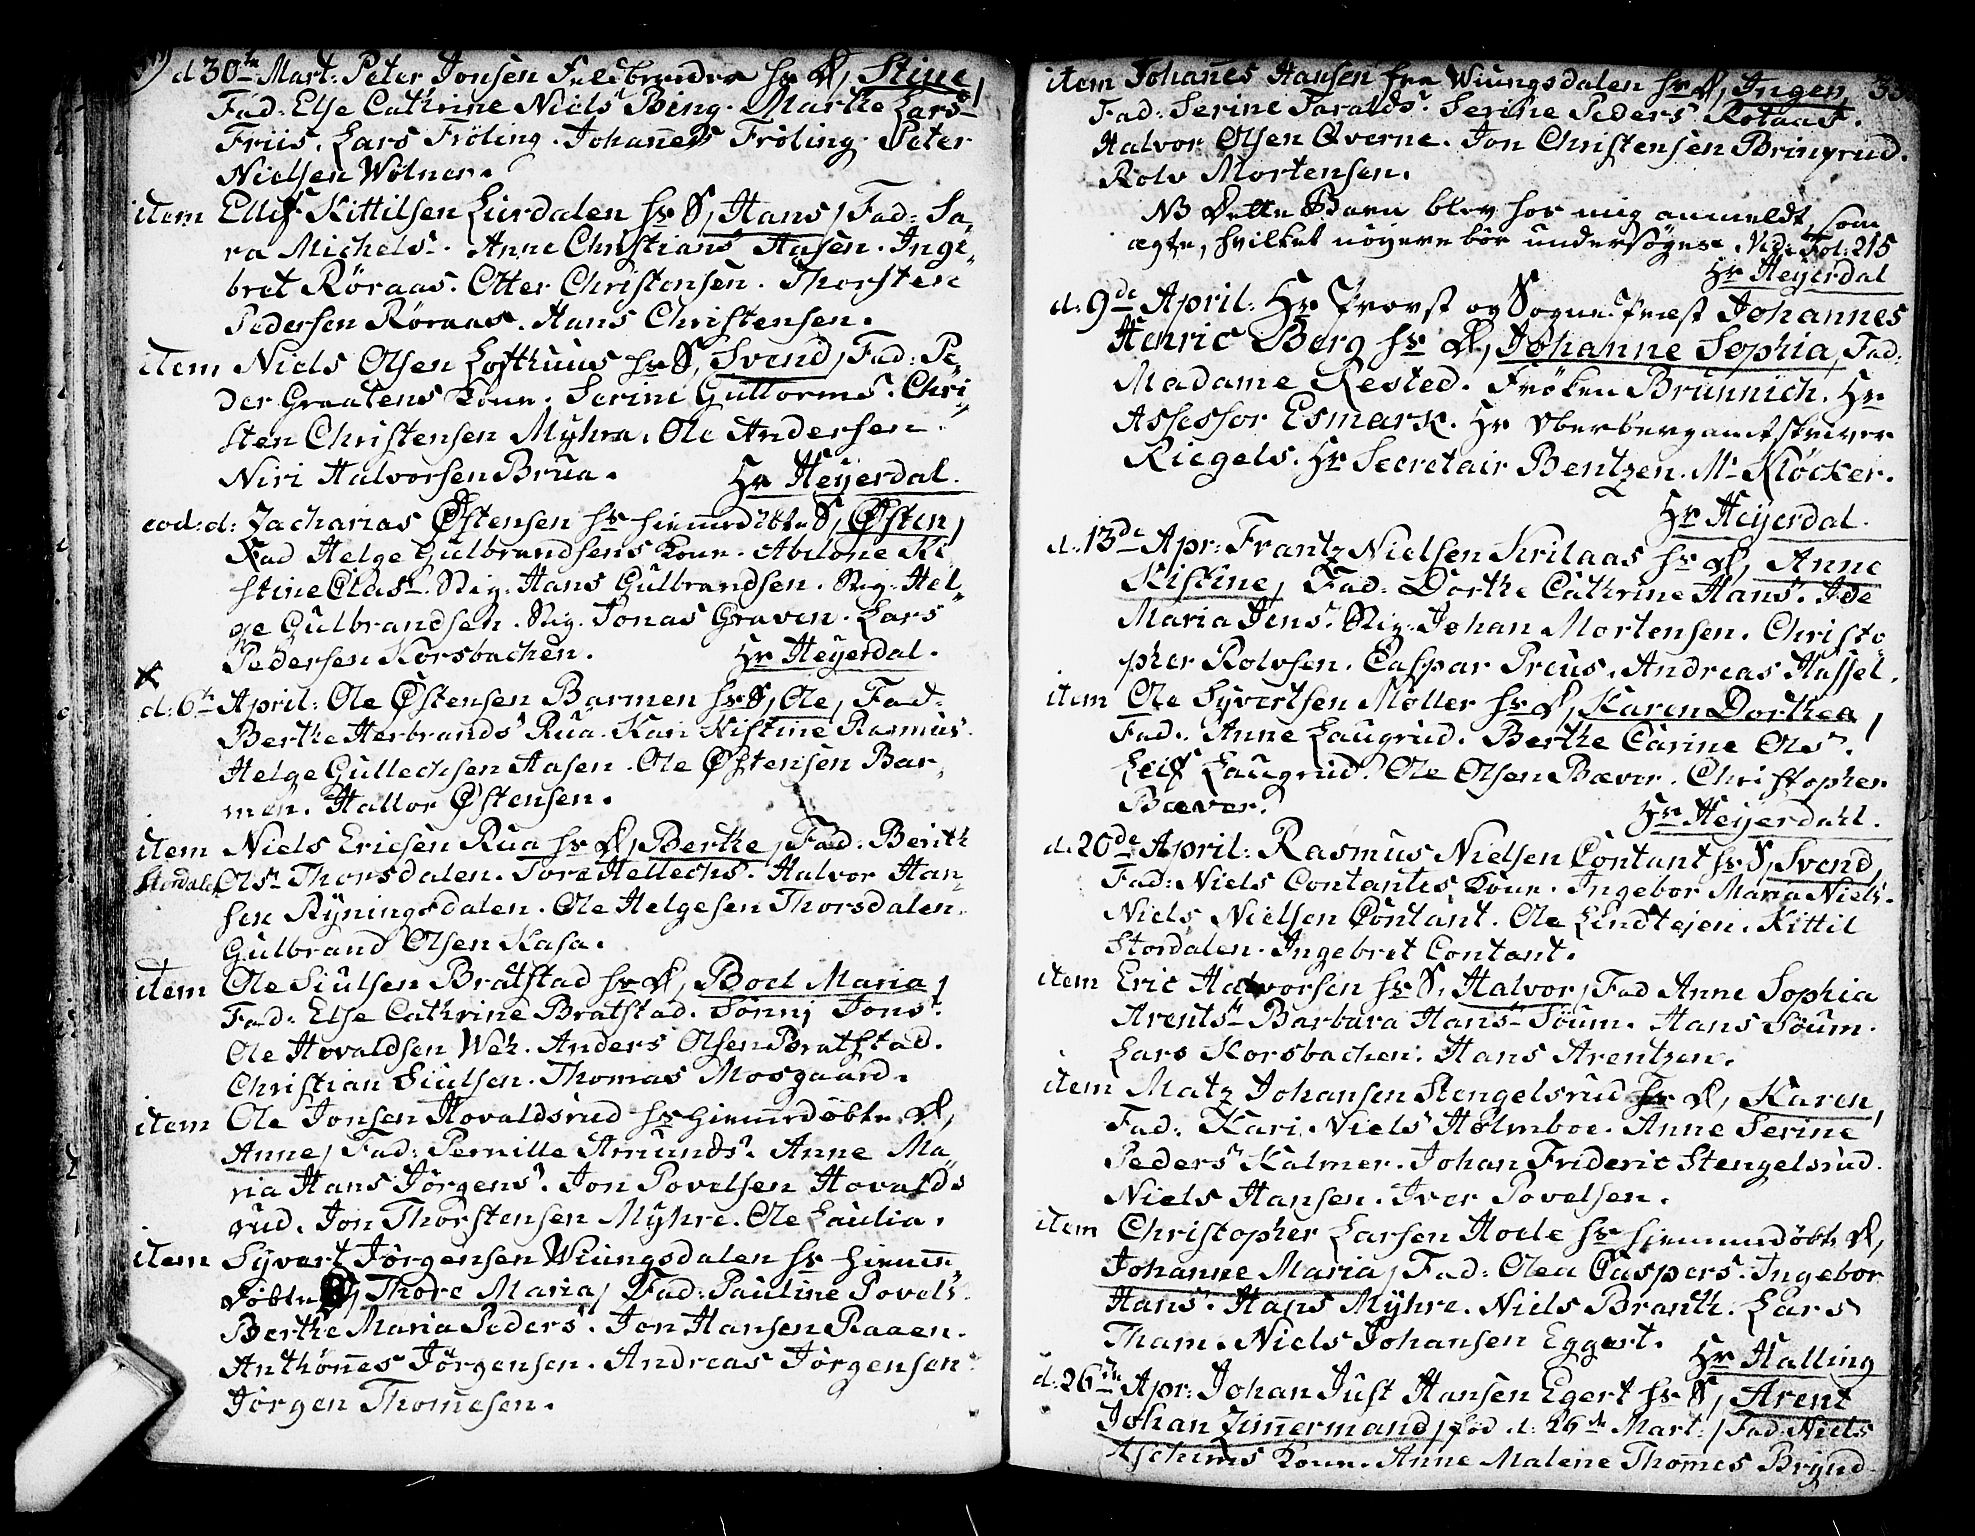 d 30te Mart: Peter Jonsen Feldbrendra hr D, Stine,
Fad: Else Cathrine Niels Bing. Marthe Lars
Friis. Lars Fröling. Johannes Fröling. Peter
Nielsen Wölner.
item Ellef Kittilsen Lierdalen hr S, Hans, Fad: Sa-
ra Michels. Anne Christians Aasen. Inge-
bret Röraas. Otter Christensen. Thorsten
Pedersen Röraas. Hans Christensen.
item Niels Olsen Lofthuus hr S, Svend, Fad: Pe-
der Graatens Kone. Serine Guttorms. Chri-
sten Christensen Myhra. Ole Andersen.
Niri Halvorsen Brua. Hr Heyerdal.
eod: d: Zacharias Østensen hr hiemmedöbte S, Østen,
Fad Helge Gulbrandsens Kone. Abelone Ki
stine Clas. Stig: Hans Gulbrandsen. Stig: Hel-
ge Gulbrandsen. Stig. Jonas Graven. Lars
Pedersen Korsbachen. Hr Heyerdal.
d: 6te April: Ole Østensen Barmen hr S, Ole, Fad:
Berthe Herbrands Rua. Kari Kistine Rasmus.
Helge Gullechsen Aasen. Ole Østensen Bar-
men. Hallor Østensen.
item Niels Ericsen Rua hr D, Berthe, Fad: Berith
Stordalen Ols. Thorsdalen. Tore Hellechs. Halvor Han-
sen Ryningsdalen. Ole Helgesen Thorsdalen.
Gulbrand Olsen Kasa.
item Ole Siulsen Bratstad hr D, Boel Maria,
Fad: Else Cathrine Bratstad. Sönni Jons.
Ole Hovaldsen Wek. Anders Olsen Bratstad.
Christian Siulsen. Thomas Mosgaard.
item Ole Jonsen Hovaldsrud hr hiemmedöbte D,
Anne, Fad: Pernille Amunds. Anne Ma-
ria Hans Jörgens. Jon Povelsen Hovalds
rud. Jon Thorstensen Myhre. Ole Laulia.
item Syvert Jörgensen Wiungsdalen hr hiemme-
döbte D, Thore Maria, Fad: Pauline Povels.
Berthe Maria Peders. Jon Hansen Raaen.
Anthönnes Jörgensen. Andreas Jörgensen
Jörgen Thomesen.
item Johannes Hansen fra Wiungsdalen hr D, Ingen,
Fad: Serine Taralds. Serine Peders Rotaas.
Halvor Olsen Qverne. Jon Christensen Bringrud.
Rolv Mortensen.
NB Dette Barn blev hos mig anmeldt, som
ægte, hvilket nöyere bör undersöges. Vid: Fol: 215
Hr Heyerdal
d: 9de April: Hr Provst og Sogne Præst Johannes
Henric Berg hr D, Johanne Sophia, Fad:
Madame Rested. Fröken Brunnich. Hr
Assessor Esmark. Hr Oberbergamtskriver
Riegels. Hr Secretair Bentzen. Mr Klöcker.
Hr Heyerdal.
d: 13de Apr: Frantz Nielsen Krilaas hr D, Anne
Kistine, Fad: Dorthe Cathrine Hans. Ide
Maria Jens. Stig: Johan Mortensen. Christo-
pher Rolvsen. Caspar Preus. Andreas Hassel.
item Ole Syvertsen Møller hr D, Karen Dorthea,
Fad: Anne Laugrud. Berthe Carine Ols.
Leif Laugrud. Ole Olsen Bæver. Christopher
Bæver. Hr Heyerdahl.
d: 20de April: Rasmus Nielsen Contant hr S, Svend,
Fad: Niels Contantes Kone. Ingebor Maria Niels.
Niels Nielsen Contant. Ole Lindtejen. Kittil
Stordalen. Ingebret Contant.
item Eric Halvorsen hr S, Halvor, Fad Anne Sophia
Arents. Barbara Hans Söum. Hans Söum.
Lars Korsbachen. Hans Arentzen.
item Matz Johansen Stengelsrud hr D, Karen,
Fad: Kari Niels Holmboe. Anne Serine
Peders Kalmer. Johan Frideric Stengelsrud.
Niels Hansen. Iver Povelsen.
item Christopher Larsen Hoele hr hjemmedöbte D,
Johanne Maria, Fad: Olea Caspers. Ingebor
Hans. Hans Myhre. Niels Branth. Lars
Tham. Niels Johansen Eggert. Hr Halling
d: 26de Apr: Johan Just Hansen Egert hr S, Arent
Johan Zimmermand, föd d: 26de Mart:, Fad: Niels
Aschims Kone. Anne Malene Thommes Brynd